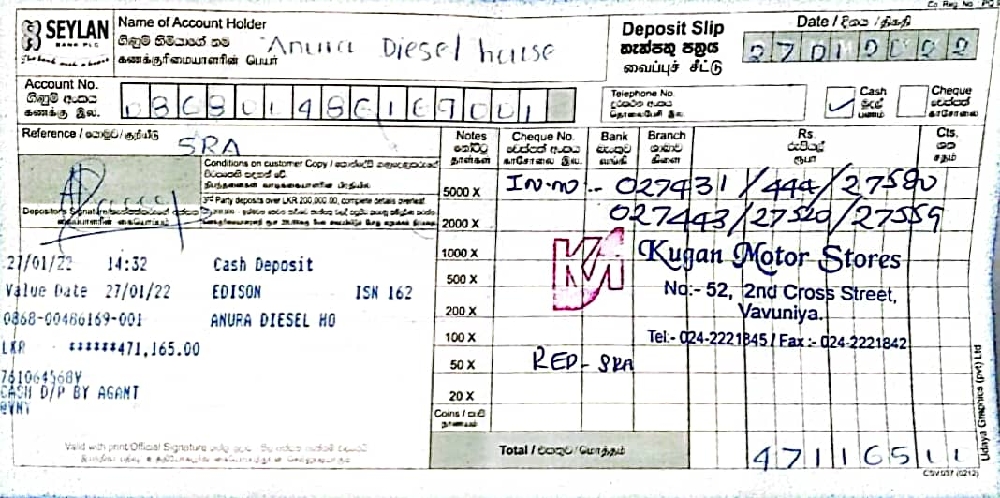 Co. Reg. No. PQ 9
SEYLAN
BANK PLC
The bank with a heart
Name of Account Holder
ගිණුම් හිමියාගේ නම
கணக்குரிமையாளரின் பெயர்
Anura Diesel house
Deposit Slip
තැන්පතු පත්‍රය
வைப்புச் சீட்டு
Date / දිනය / திகதி
27012022
Account No.
ගිණුම් අංකය
கணக்கு இல.
Telephone No.
දුරකථන අංකය
தொலைபேசி இல.
Cash
මුදල්
பணம்
Cheque
චෙක්පත්
காசோலை
Reference /
SRA
Conditions on customer Copy /
3rd Party deposits over LKR 200,000.00, complete details overleaf.
Depositor's Signature
Notes
නෝට්ටු
தாள்கள்
Cheque No.
චෙක්පත් අංකය
காசோலை இல.
Bank
බැංකුව
வங்கி
Branch
ශාඛාව
கிளை
Rs.
රුපියල්
ரூபா
Cts.
ශත
சதம்
5000 X
IN-NO -- 027431/444/27580
2000 X
027443/27520/27559
1000 X
500 X
200 X
100 X
50 X
20 X
KM
Kugan Motor Stores
No.- 52, 2nd Cross Street,
Vavuniya.
Tel:- 024-2221845 / Fax :- 024-2221842
REP - SRA
27/01/22 14:32 Cash Deposit
Value Date 27/01/22 EDISON ISN 162
0868-00486169-001 ANURA DIESEL HO
LKR ******471,165.00
761064568V
CASH D/P BY AGANT
@VNY
Coins / කාසි
நாணயம்
Valid with print/Official Signature
Total / එකතුව / மொத்தம்
47116511
Udaya Graphics (pvt) Ltd